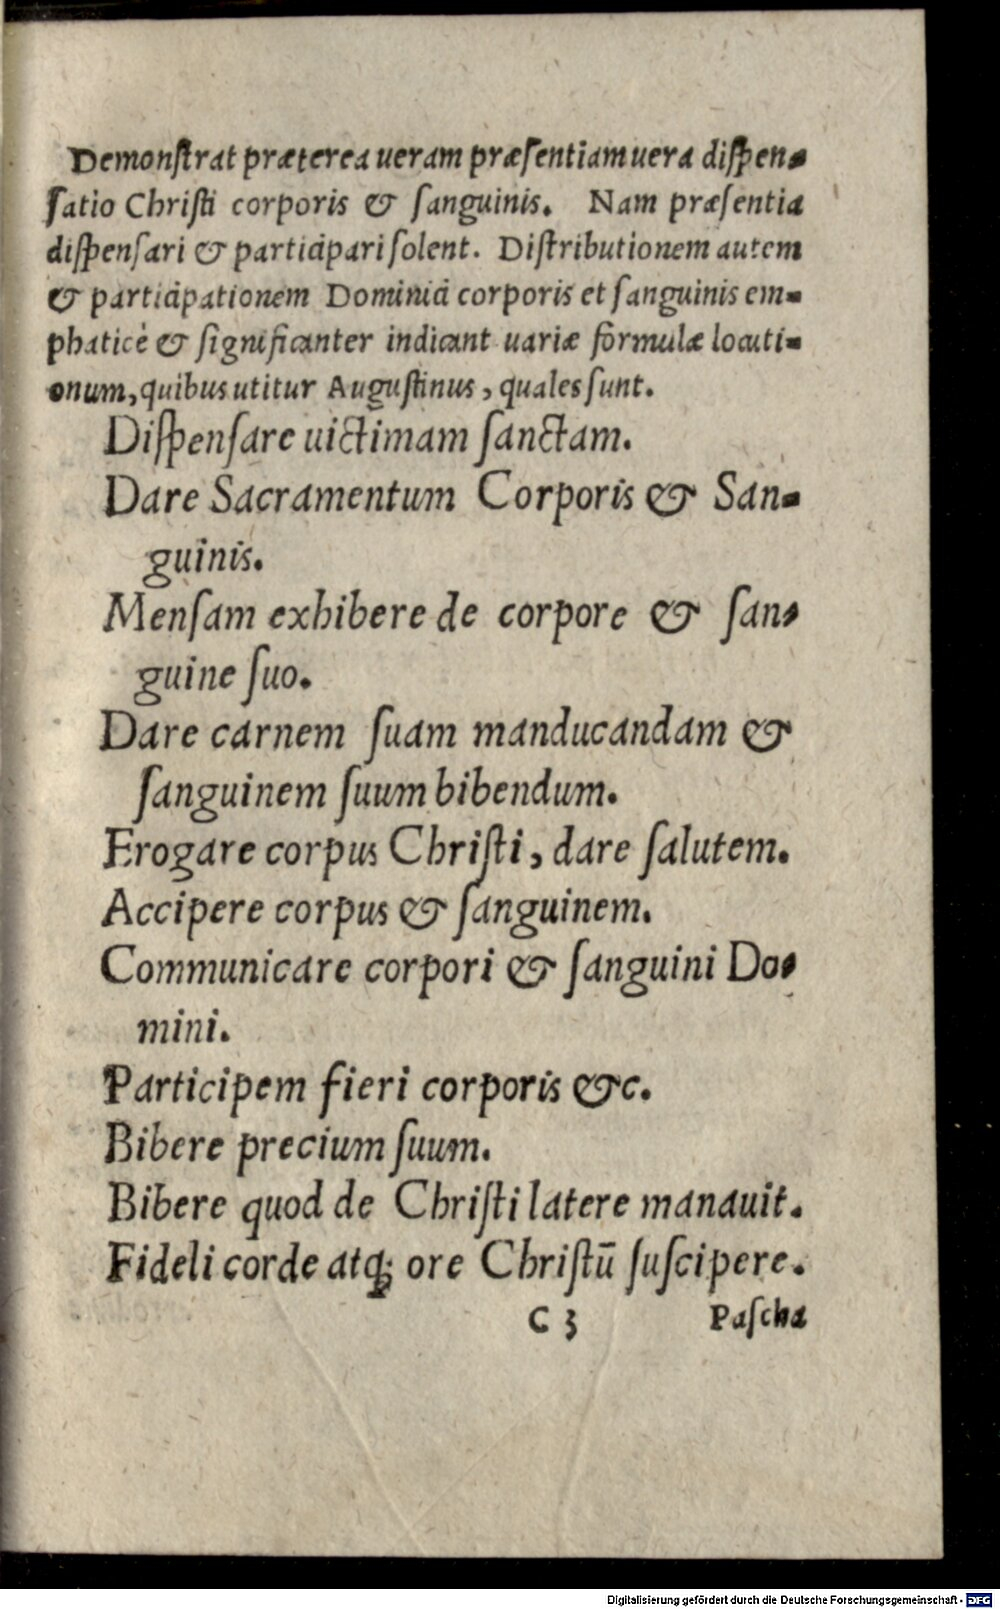 Demonſtrat præterea ueram præſentiam uera diſpen-
ſatio Chriſti corporis & ſanguinis. Nam præſentia
diſpenſari & participari ſolent. Diſtributionem autem
& participationem Dominici corporis et ſanguinis em-
phaticè & ſignificanter indicant uariæ formulæ locuti-
onum, quibus utitur Auguſtinus, quales ſunt.
Diſpenſare uictimam ſanctam.
Dare Sacramentum Corporis & San-
guinis.
Menſam exhibere de corpore & ſan-
guine ſuo.
Dare carnem ſuam manducandam &
ſanguinem ſuum bibendum.
Erogare corpus Chriſti, dare ſalutem.
Accipere corpus & ſanguinem.
Communicare corpori & ſanguini Do-
mini.
Participem fieri corporis &c.
Bibere precium ſuum.
Bibere quod de Chriſti latere manauit.
Fideli corde atq; ore Chriſtū ſuſcipere.
C 3 Paſcha
Digitalisierung gefördert durch die Deutsche Forschungsgemeinschaft - DFG